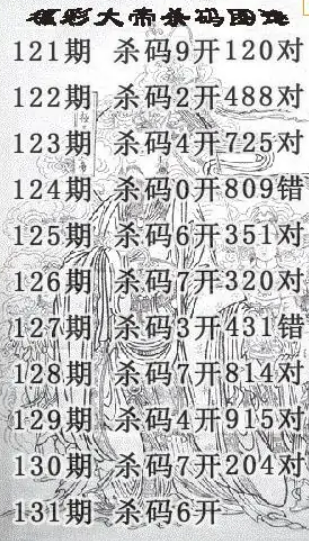 彩大帝杀码图
121期 杀码9开120对
122期 杀码2开488对
123期 杀码4开725对
124期 杀码0开809错
125期 杀码6开351对
126期 杀码7开320对
127期 杀码3开431错
128期 杀码7开814对
129期 杀码4开915对
130期 杀码7开204对
131期 杀码6开